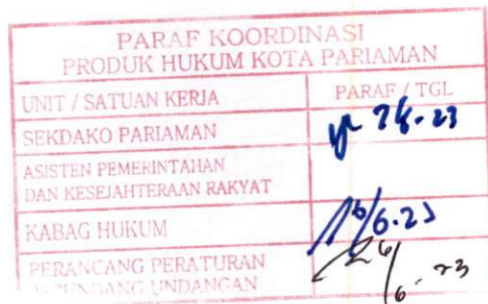 PARAF KOORDINASI
PRODUK HUKUM KOTA PARIAMAN
UNIT / SATUAN KERJA PARAF / TGL
SEKDAKO PARIAMAN
ASISTEN PEMERINTAHAN
DAN KESEJAHTERAAN RAKYAT
KABAG HUKUM
PERANCANG PERATURAN
UNDANG